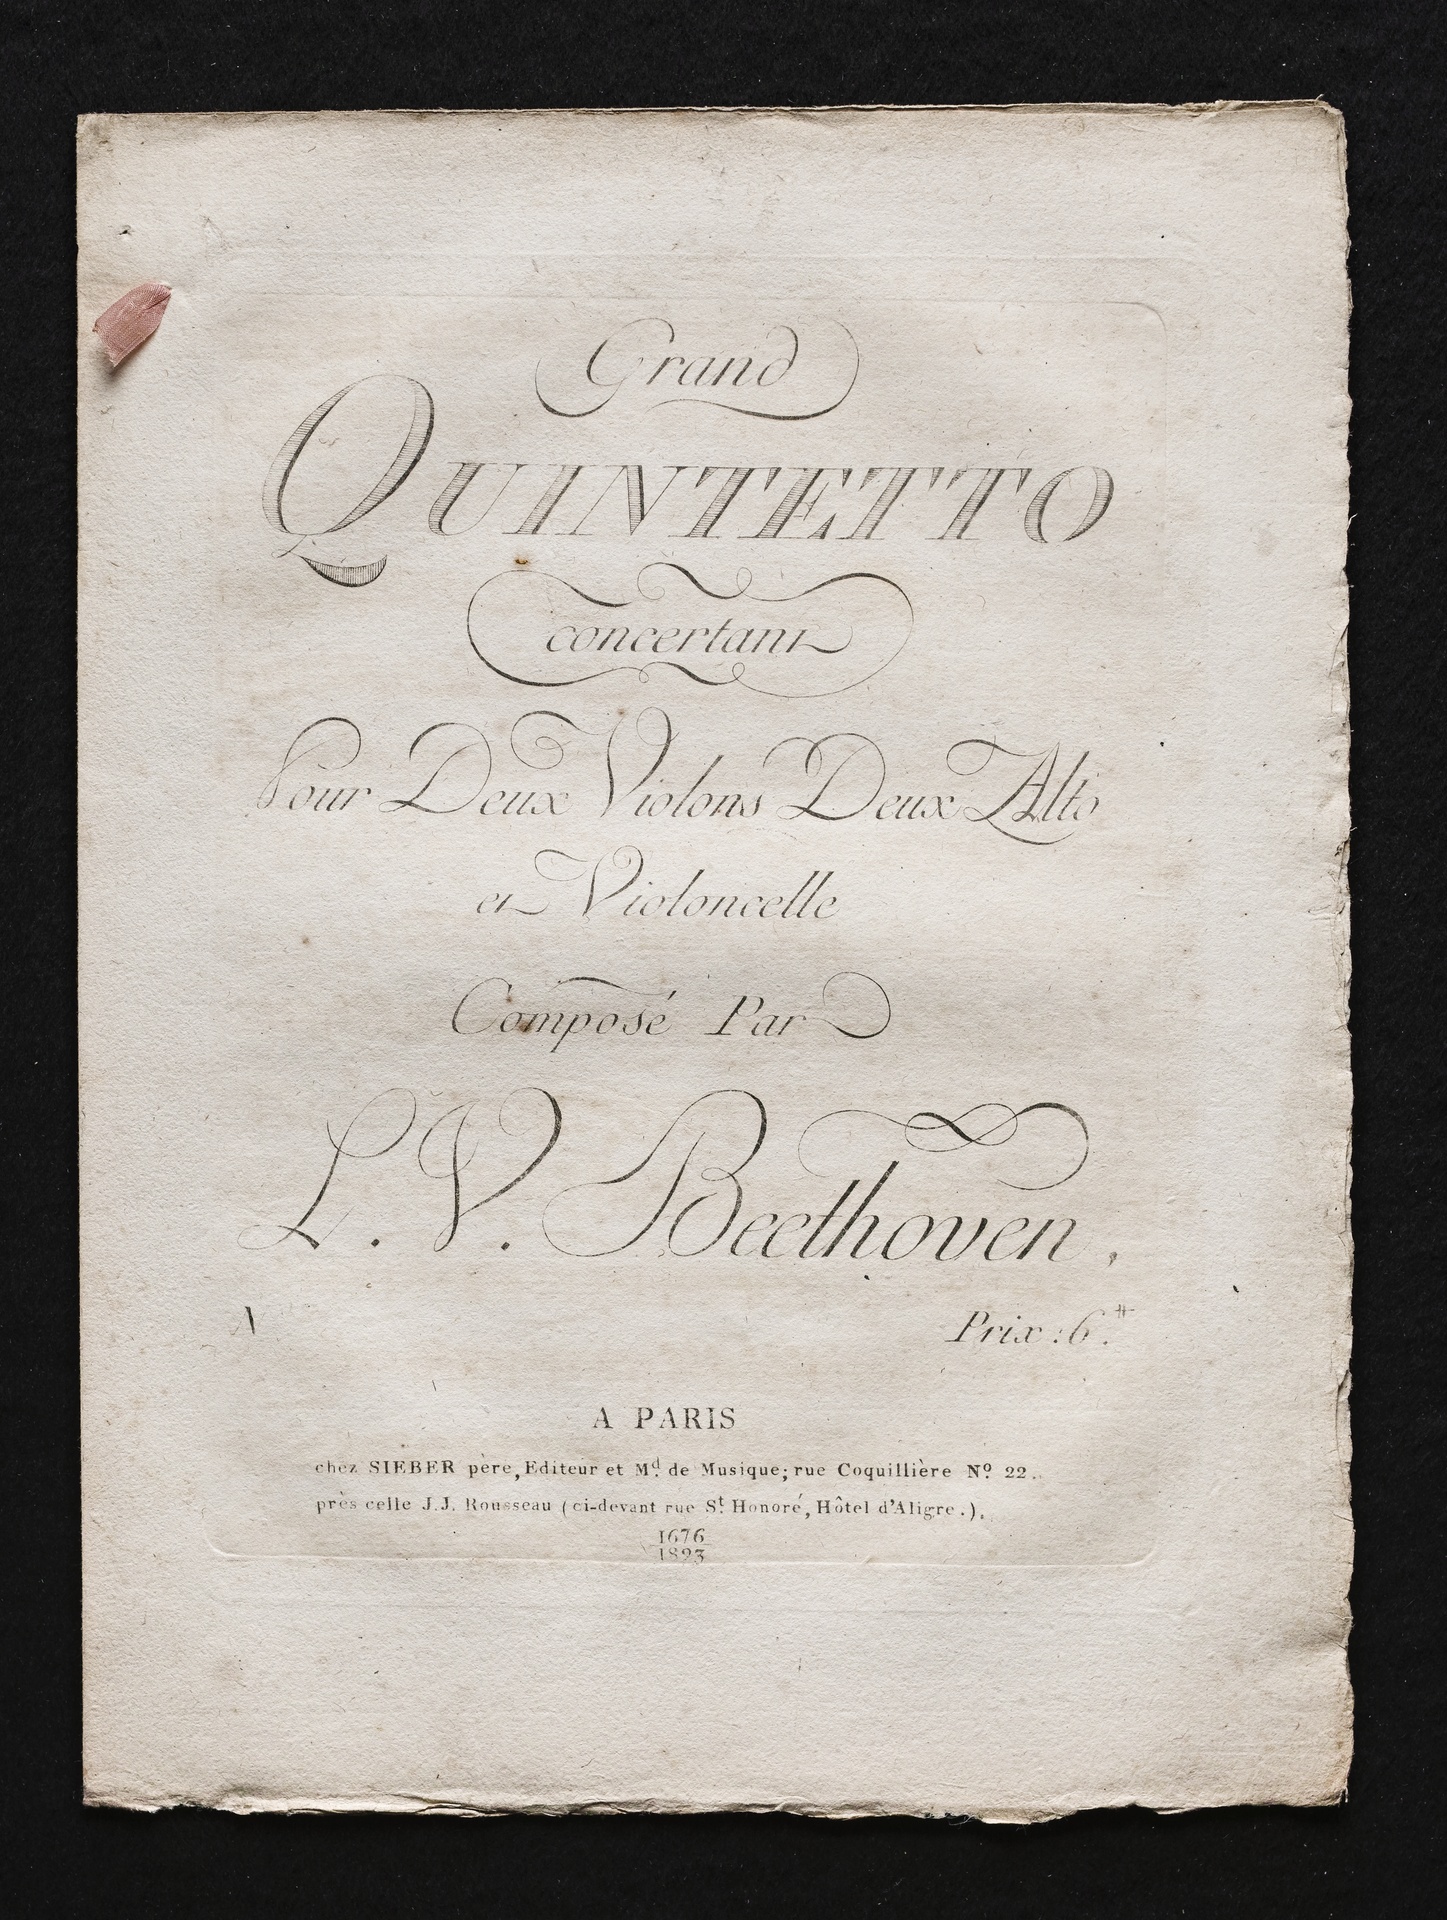 Grand
QUINTETTO
concertant
Pour Deux Violons Deux Alto
et Violoncelle
Composé Par
L. V. Beethoven,
Prix: 6.#
A PARIS
chez SIEBER père, Editeur et Md. de Musique; rue Coquillière No. 22.
près celle J.J. Rousseau (ci-devant rue St. Honoré, Hôtel d'Aligre.).
1676
1823